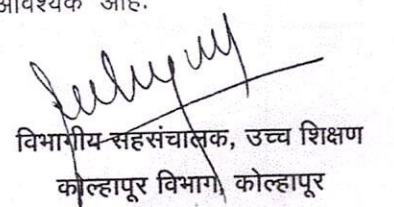 आवश्यक आहे.
विभागीय सहसंचालक, उच्च शिक्षण
कोल्हापूर विभाग, कोल्हापूर